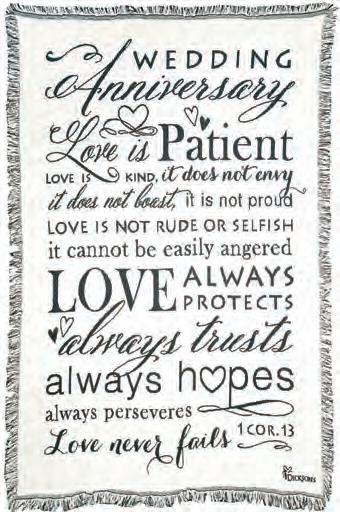 WEDDING
Anniversary
Love is Patient
LOVE IS KIND, it does not envy
it does not boast, it is not proud
LOVE IS NOT RUDE OR SELFISH
it cannot be easily angered
LOVE ALWAYS
PROTECTS
always trusts
always hopes
always perseveres
Love never fails 1 COR. 13
DICKSONS